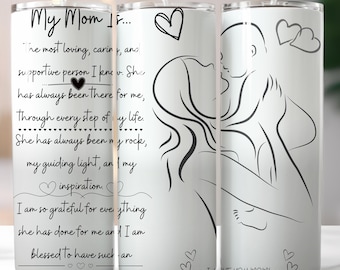 My Mom Is...
The most loving, caring, and
supportive person I know. She
has always been there for me,
Through every step of my life.
She has always been my rock,
my guiding light, and my
inspiration
I am so grateful for everything
she has done for me and I am
blessed to have such an